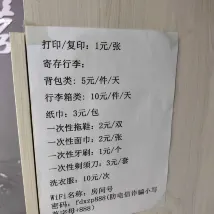 打印/复印：1元/张
寄存行李：
背包类：5元/件/天
行李箱类：10元/件/天
纸巾：3元/包
一次性拖鞋：2元/双
一次性面巾：2元/张
一次性牙刷：1元/个
一次性剃须刀：3元/套
洗衣液：10元/次
WiFi名称：房间号
密码：fdxzp888(防电信诈骗小写
首字母+888)